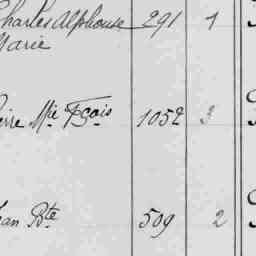 Charles Alphonse 291 1
Marie
Pierre Mie Fçois 1052 3
Jean Bte 509 2